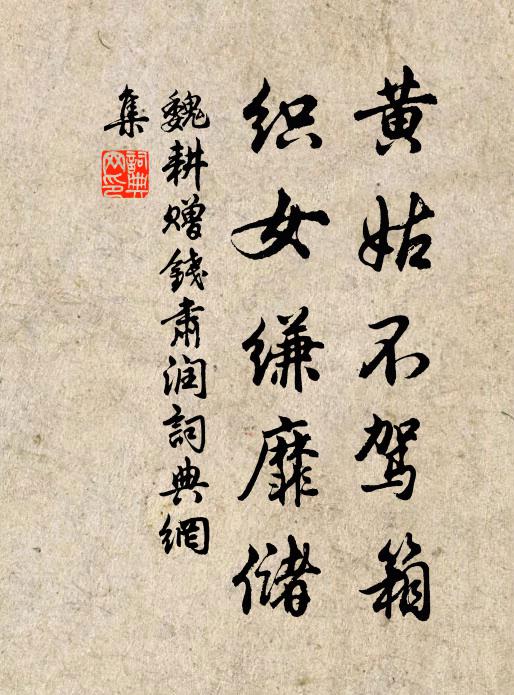 黄姑不驾箱
织女缣靡储
魏耕赠錢肃润詞典網
集
詞典
网印